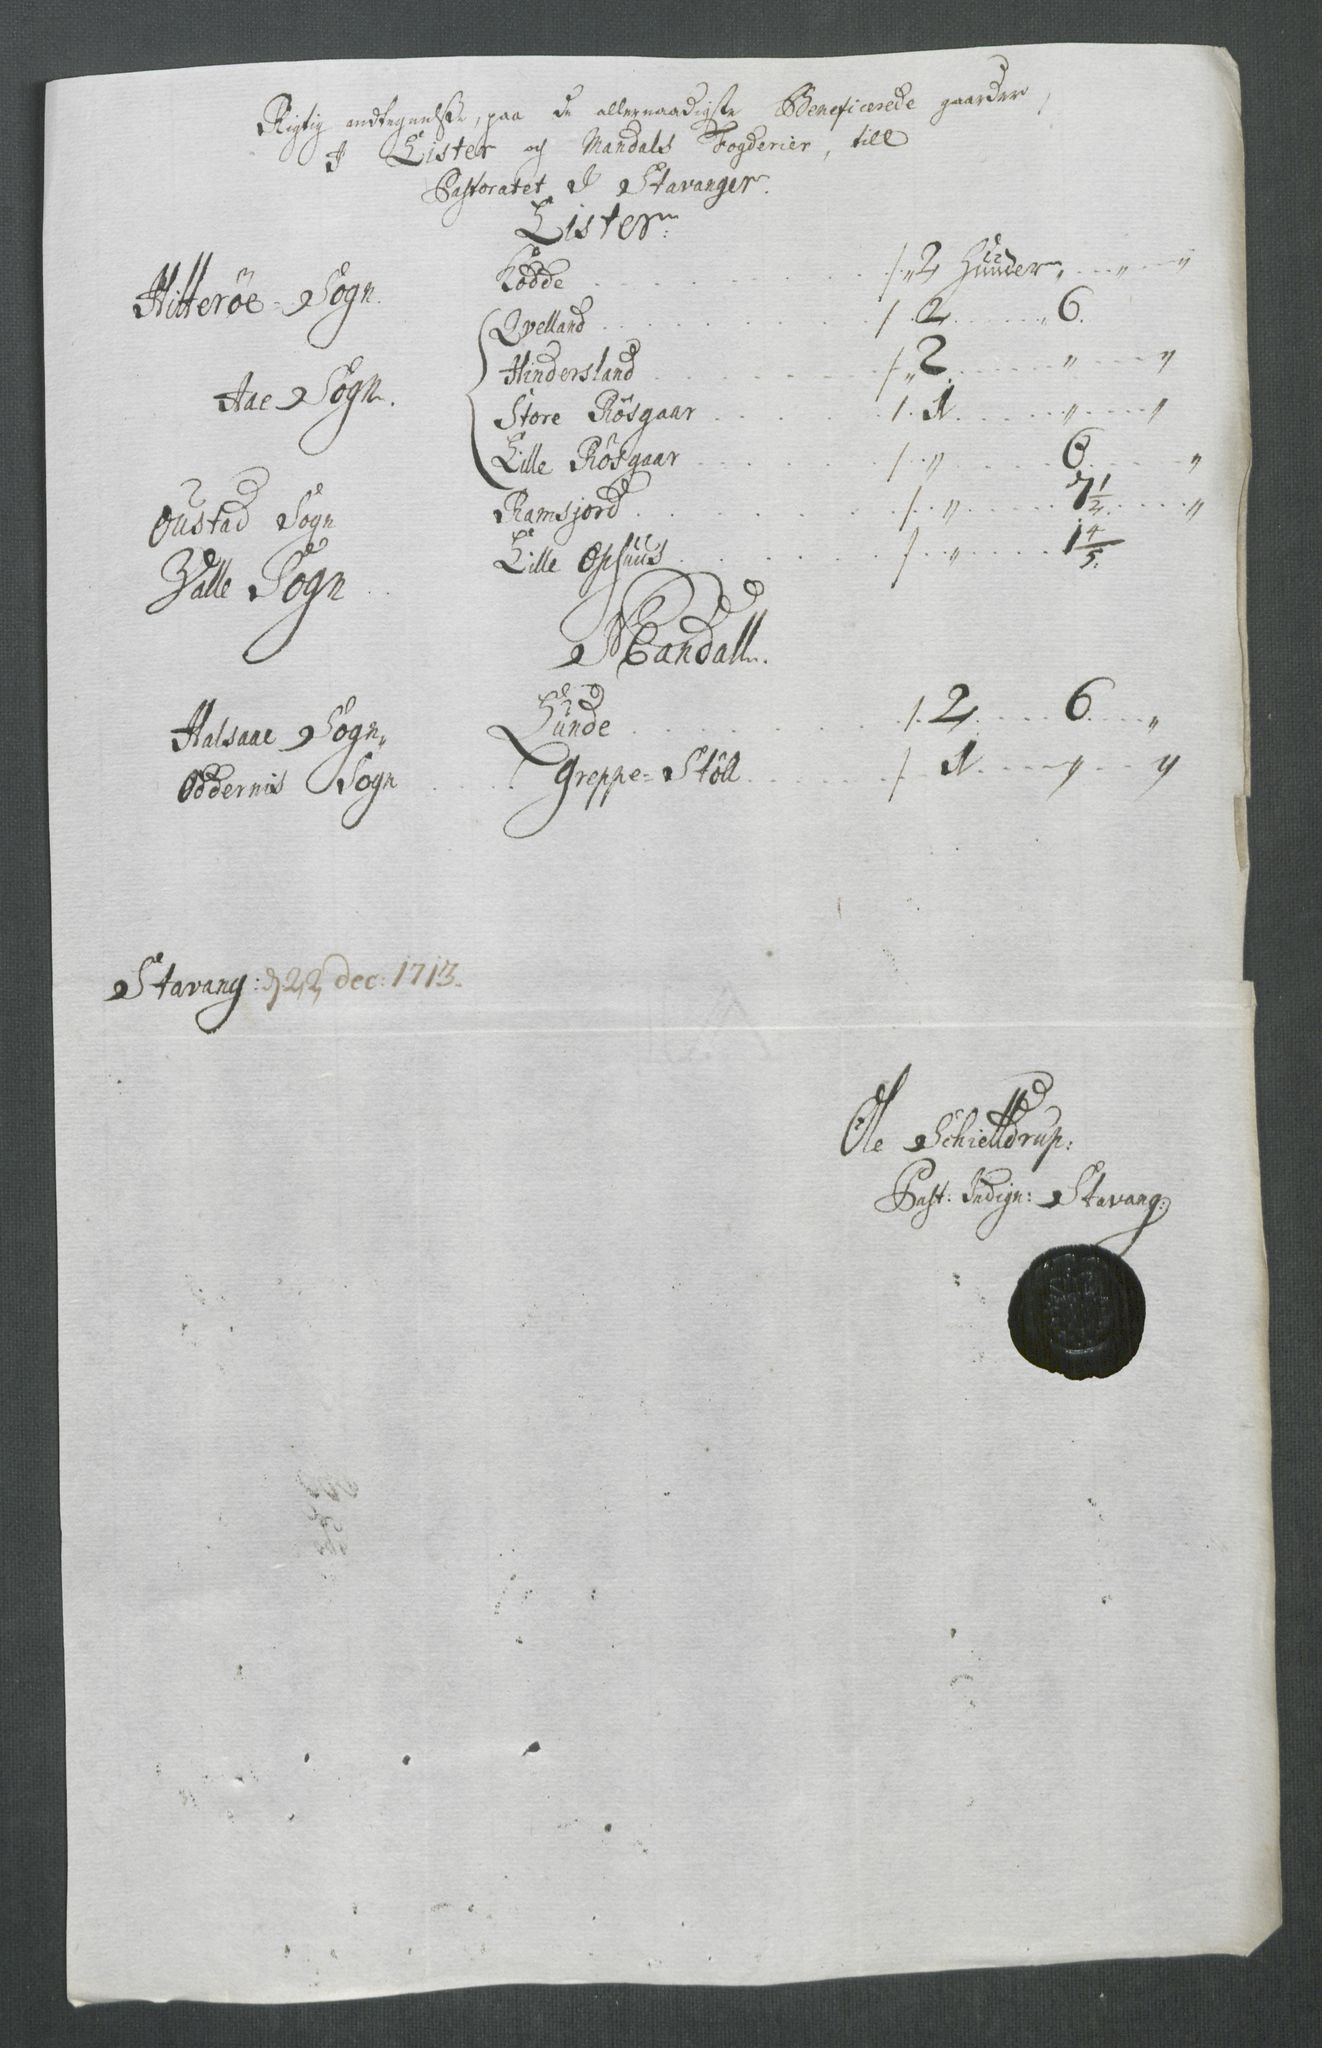 Rigtig andtegnelse, paa de allernaadigste Beneficerede gaarder,
I Lister og Mandals Fogderier, till
Pastoratet I Stavanger.
Lister:
Hitterøe Sogn. Rødde / „ 2 Huuder „ „
Qvelland / 2 6.
Aae Sogn. Hindersland / „ 2 „ „
Store Røsgaar / 1 „ „
Lille Røsgaar / „ 6 „
Oustad Sogn Ramsjord / „ 7 1/2 „
Valle Sogn Lille Ophuus / „ 1 4/5.
Mandall.
Halsaae Sogn, Lunde / 2 6 „
Oddernis Sogn Greppe-Støll / 1 „ „
Stavang: d 22 dec: 1713.
Ole Schielldrup:
Past: Indign: Stavang: